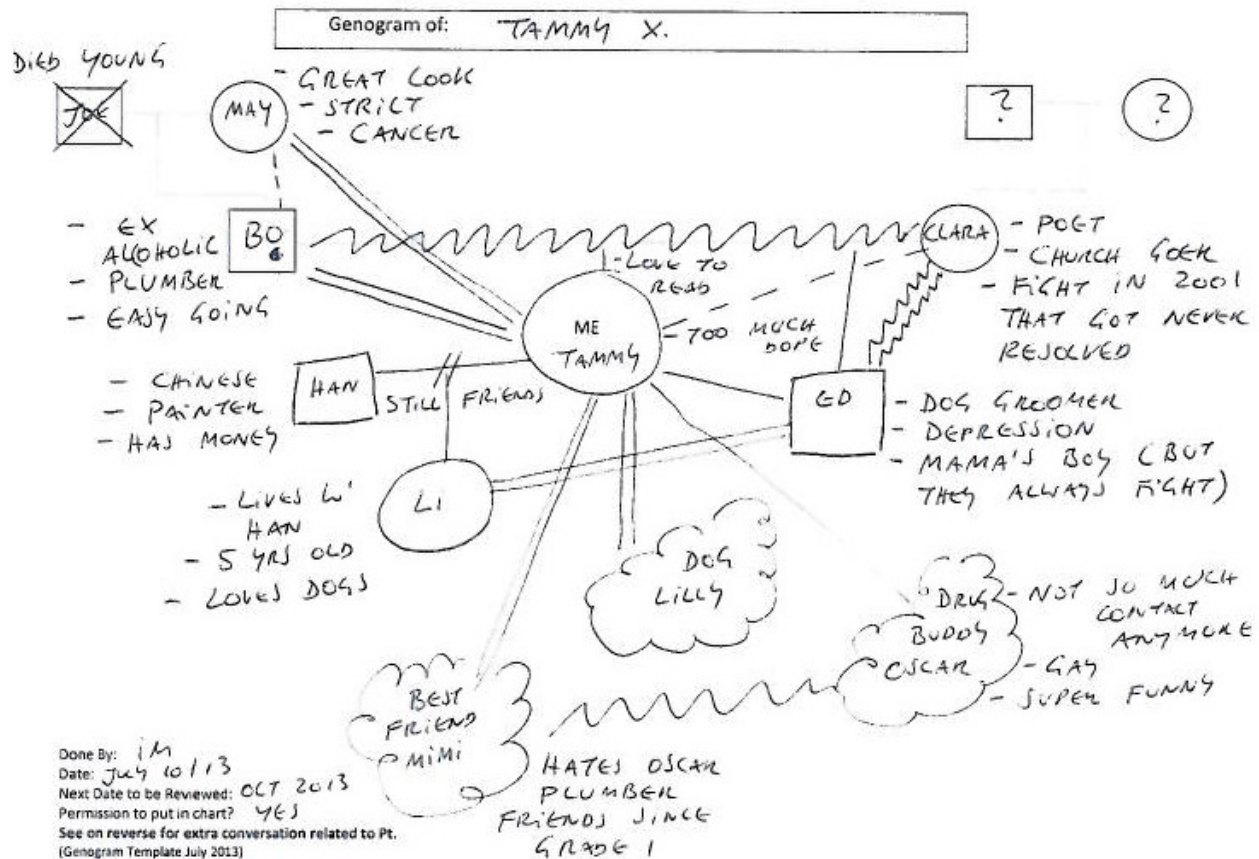 Genogram of: TAMMY X.
DIED YOUNG
JOE
MAY
- GREAT COOK
- STRICT
- CANCER
?
?
- EX
ALCOHOLIC
- PLUMBER
- EASY GOING
BO
CLARA
- POET
- CHURCH GOER
- FIGHT IN 2001
THAT GOT NEVER
RESOLVED
- LOVE TO
READ
ME
TAMMY
- TOO MUCH
DOPE
- CHINESE
- PAINTER
- HAS MONEY
HAN
STILL FRIENDS
ED
- DOG GROOMER
- DEPRESSION
- MAMA'S BOY (BUT
THEY ALWAYS FIGHT)
- LIVES W'
HAN
- 5 YRS OLD
- LOVES DOGS
LI
DOG
LILLY
DRUG
BUDDY
OSCAR
- NOT SO MUCH
CONTACT
ANYMORE
- GAY
- SUPER FUNNY
BEST
FRIEND
MIMI
HATES OSCAR
PLUMBER
FRIENDS SINCE
GRADE 1
Done By: iM
Date: July 10/13
Next Date to be Reviewed: OCT 2013
Permission to put in chart? YES
See on reverse for extra conversation related to Pt.
(Genogram Template July 2013)